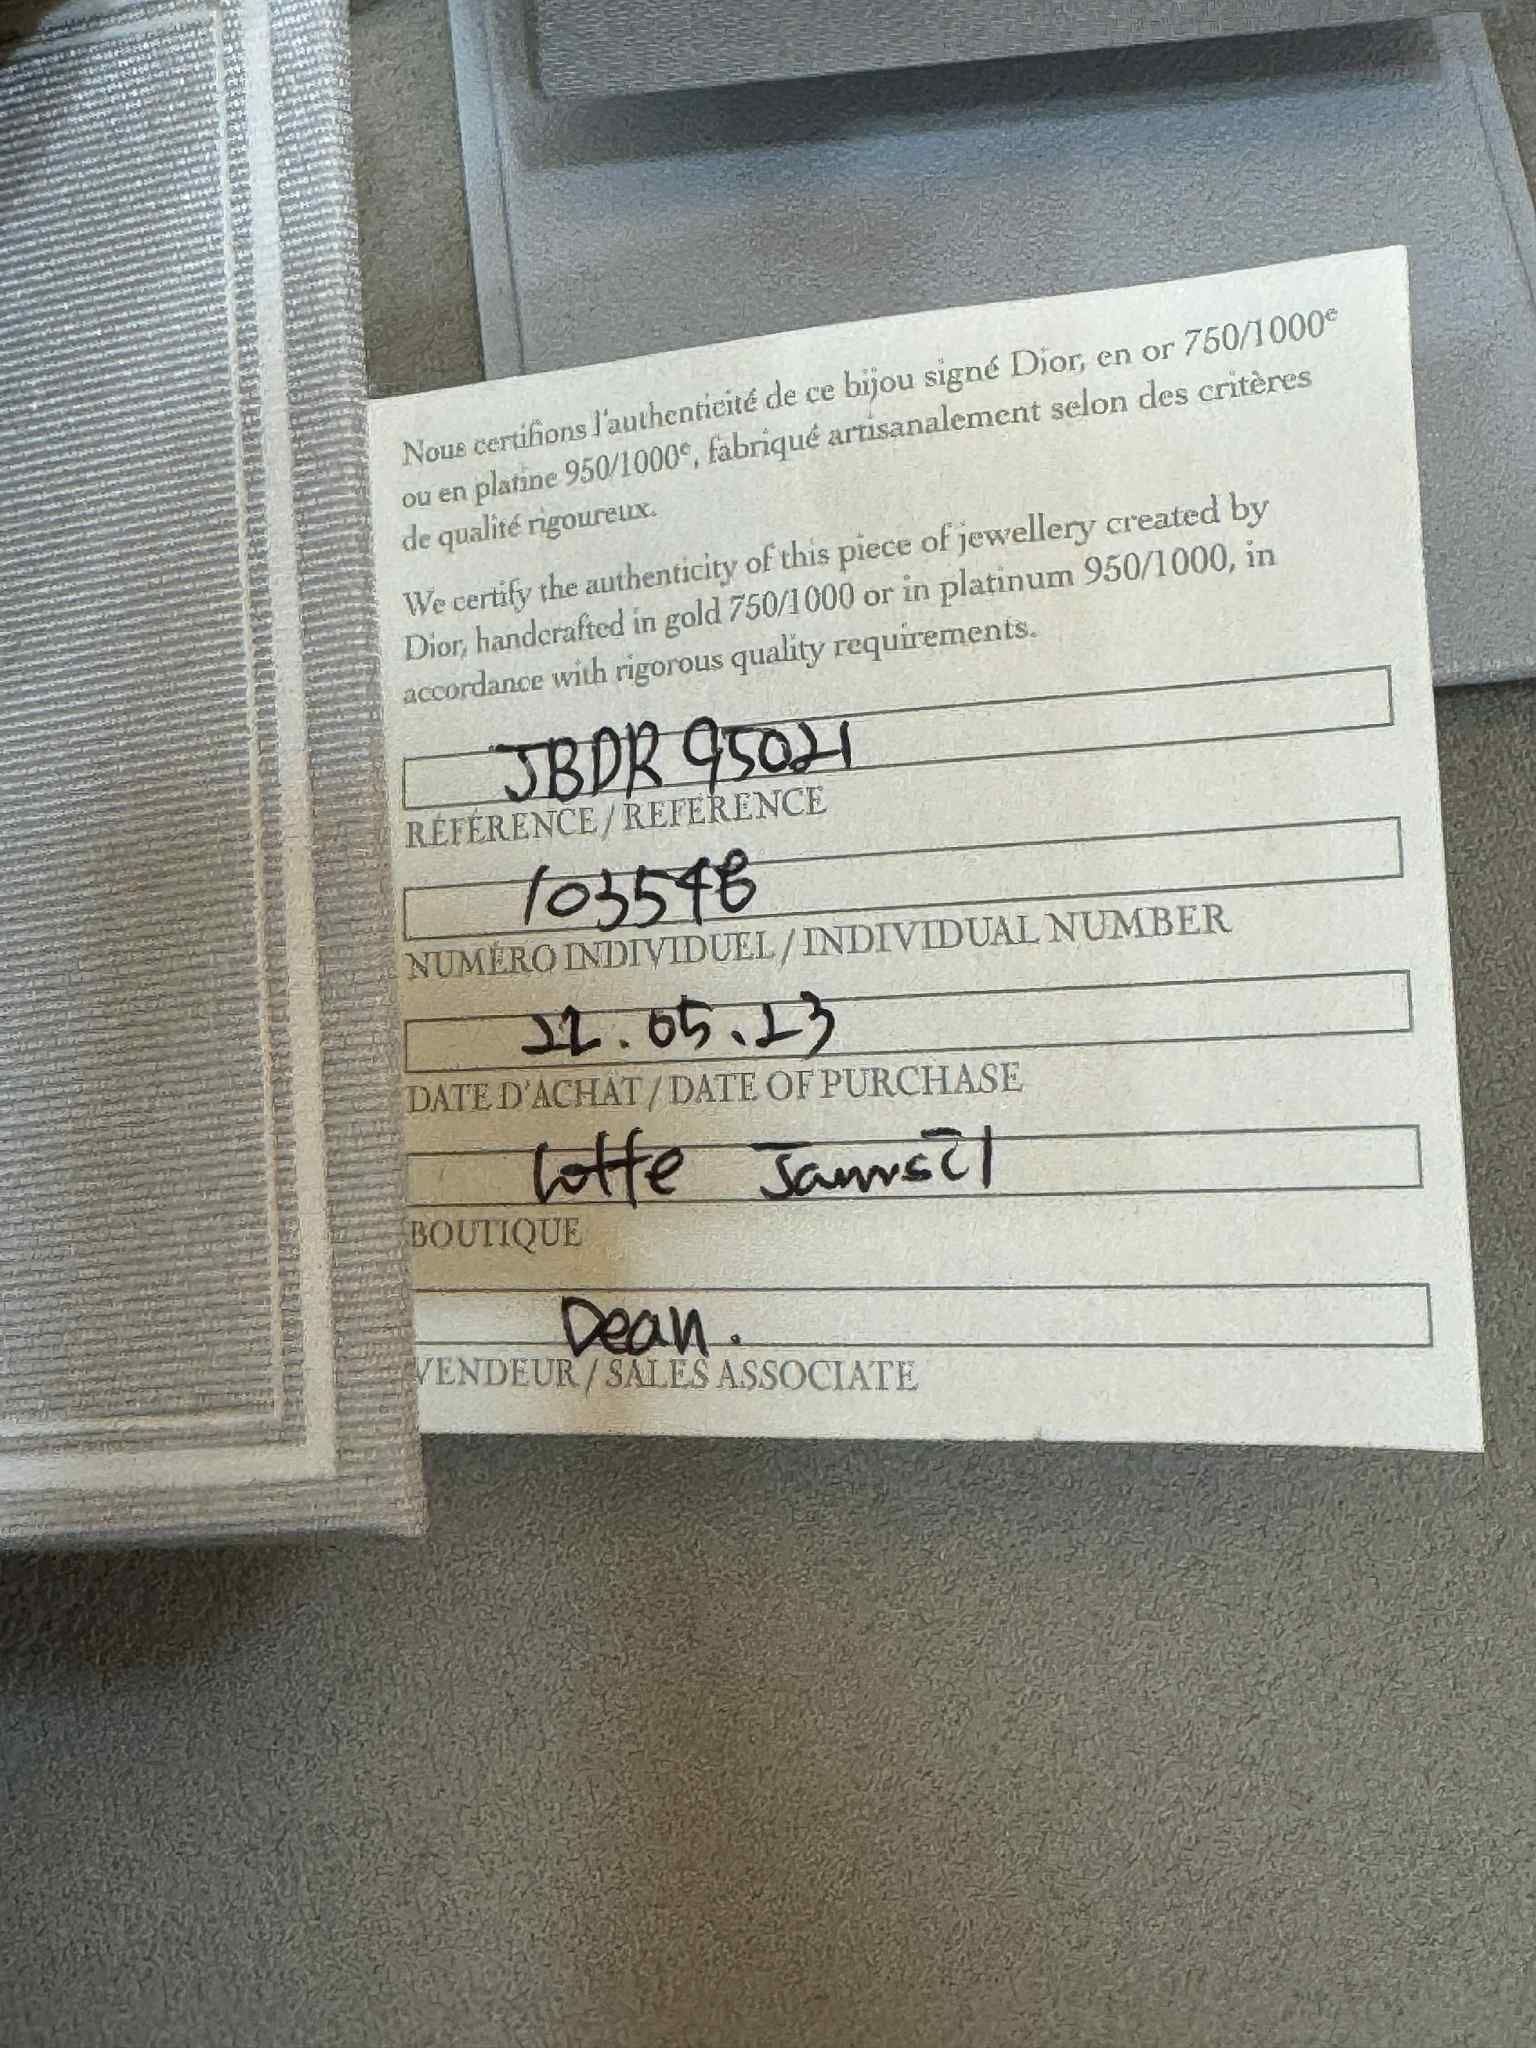 Nous certifions l'authenticité de ce bijou signé Dior, en or 750/1000e
ou en platine 950/1000e, fabriqué artisanalement selon des critères
de qualité rigoureux.
We certify the authenticity of this piece of jewellery created by
Dior, handcrafted in gold 750/1000 or in platinum 950/1000, in
accordance with rigorous quality requirements.
JBDR 95021
RÉFÉRENCE / REFERENCE
103548
NUMÉRO INDIVIDUEL / INDIVIDUAL NUMBER
22.05.23
DATE D'ACHAT / DATE OF PURCHASE
Lotte Jamsil
BOUTIQUE
Dean.
VENDEUR / SALES ASSOCIATE